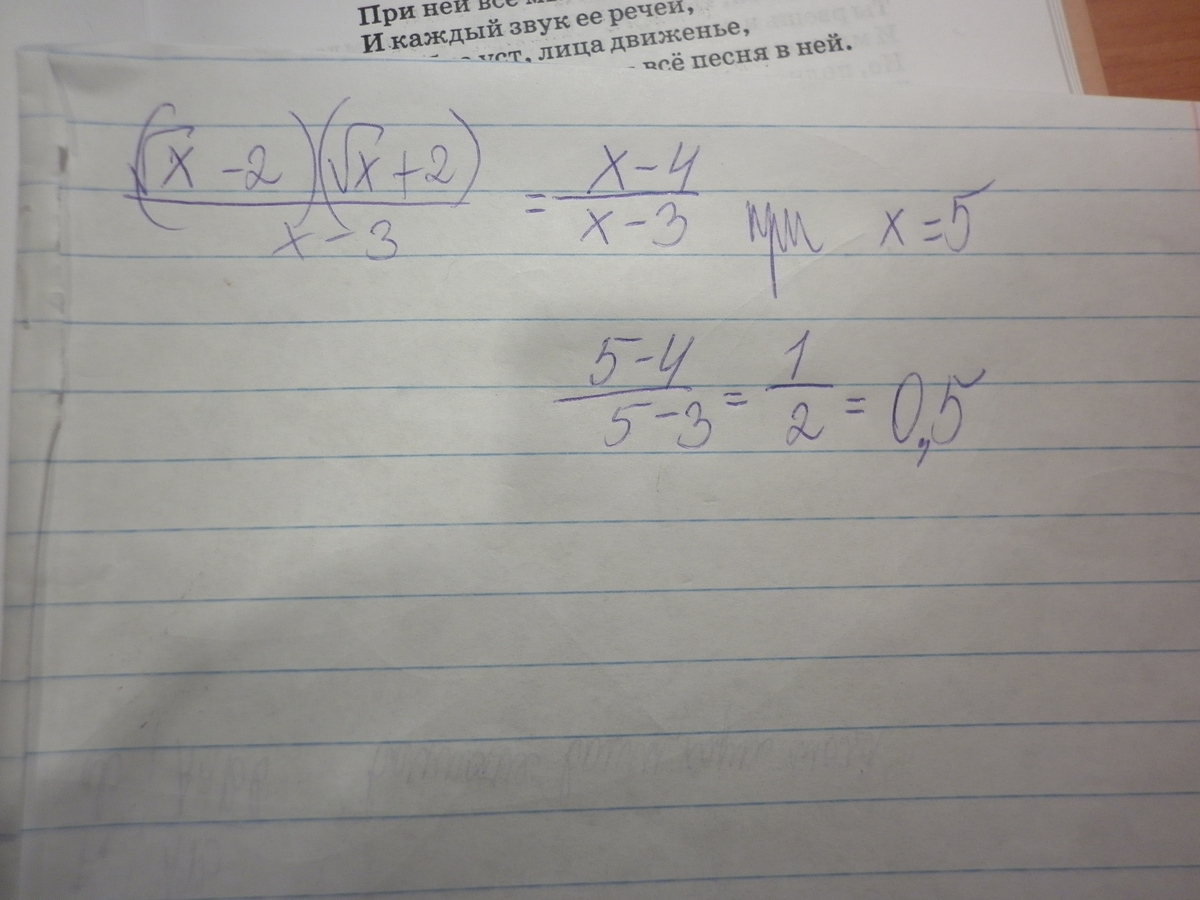 При ней все
И каждый звук ее речей,
уст, лица движенье,
всё песня в ней.
(√x - 2)(√x + 2) / x - 3 = x - 4 / x - 3 при x = 5
5 - 4 / 5 - 3 = 1 / 2 = 0,5